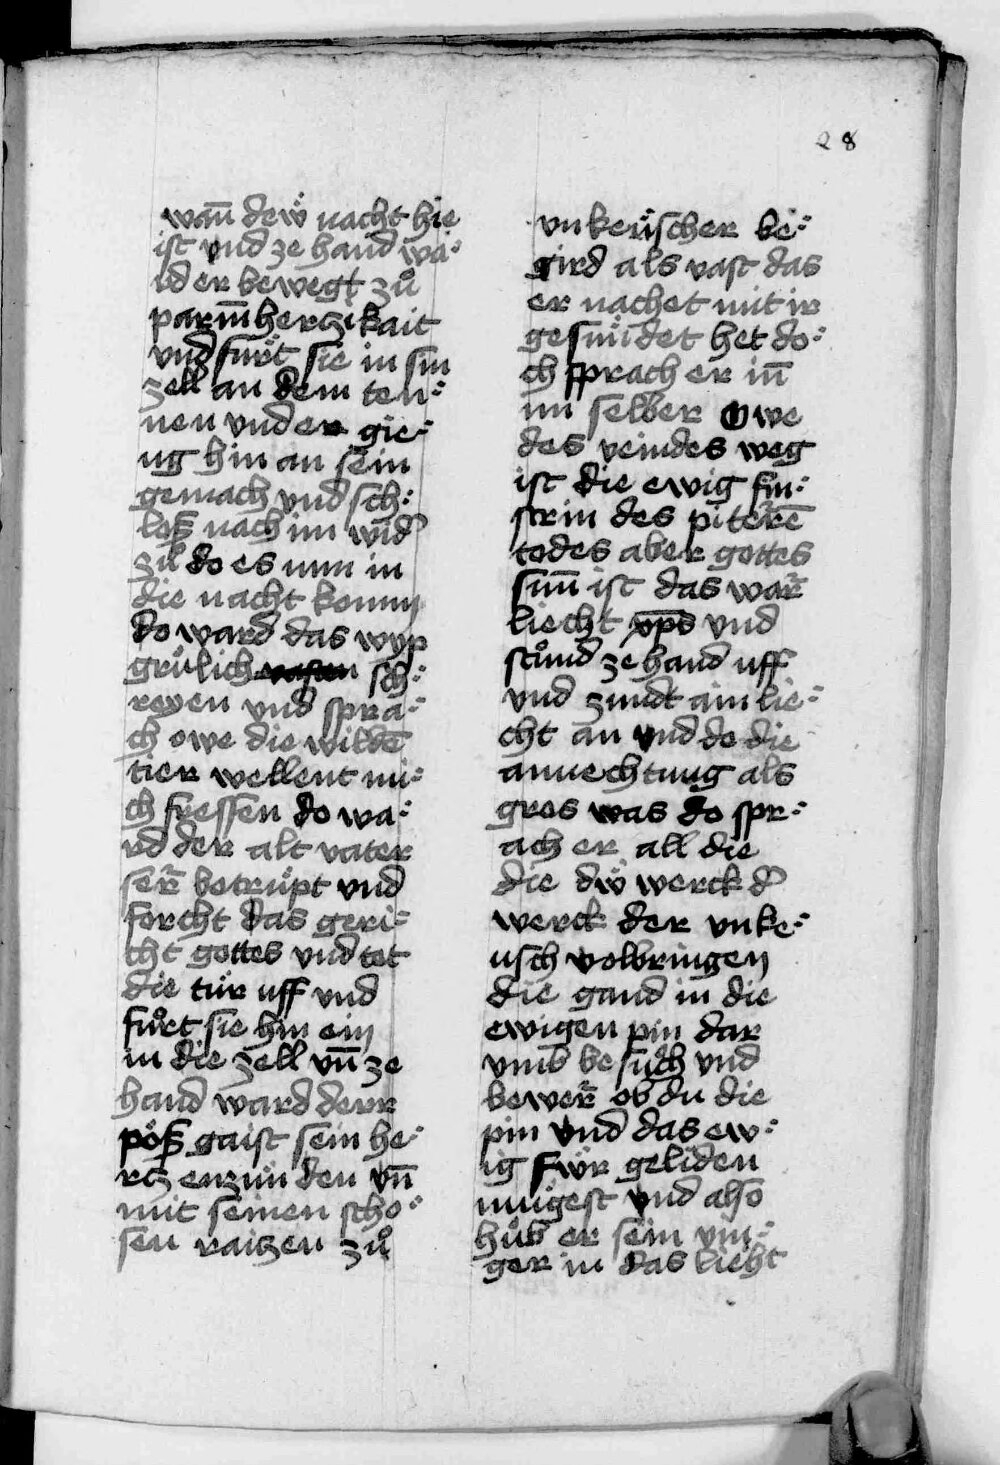 28
wan̄ dew̎ nacht hie
ist vnd ze hand wa⸗
rd er bewegt zů
parm̄hertzikait
vnd fürt sie in sin
zell an dem ten⸗
nen vnd er gie⸗
ng hin an sein
gemach vnd sch⸗
los nach im wid᷑
zů do es nun in
die nacht komm
do ward das wyp
grůlich vasten sch⸗
reyen vnd spra⸗
ch owe die wildē
tier wellent mi⸗
ch fressen do wa⸗
rd der alt vater
ser̄ betrüpt vnd
forcht das geri⸗
cht gottes vnd tet
die tür uff vnd
fůrt sie hin ein
in die zell vn̄ ze
hand ward derr
pöß gaist sein he⸗
rtz enzün den vn̄
mit seinen scho⸗
sen raitzen zů
vnkeüscher be⸗
gird als vast das
er nachet mit ir
gesündet het do⸗
ch sprach er in̄
im selber Owe
des veindes weg
ist die ewig fin⸗
strin des piterē
todes aber gottes
sun̄ ist das war̄
liecht vnd
stůnd ze hand uff
vnd zundt ain lie⸗
cht an vnd do die
anuechtung als
gros was do spr⸗
ach er all die
die dw̎ werck d᷑
werck der vnke⸗
usch volbringen
die gand in die
ewigen pin dar
vmb be sůch vnd
bewer̄ ob du die
pin vnd das ew⸗
ig fwr geliden
mügest vnd also
hůb er sein vin⸗
ger in das lieht